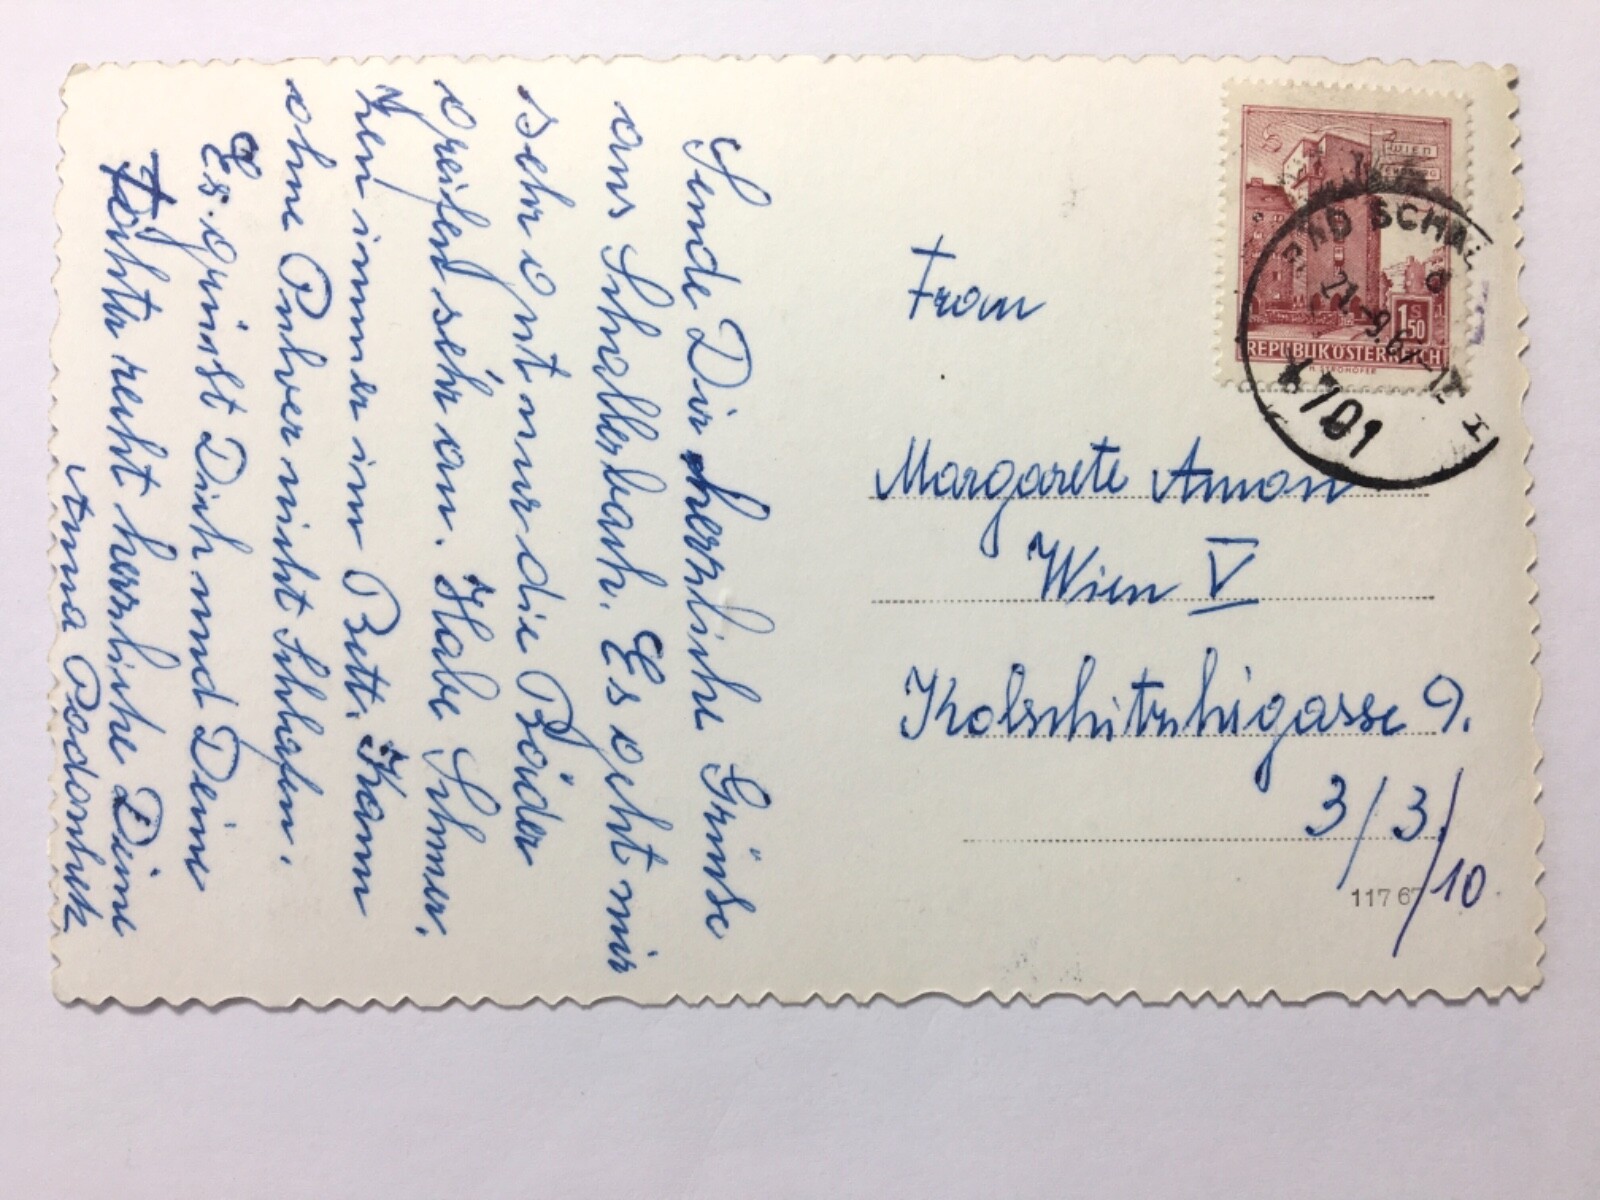 Sende Dir herzliche Grüße
aus Schallerbach. Es geht mir
sehr gut nur die Bäder
greifen sehr an. Habe Schmer,
zen immer im Bett. Kann
ohne Pulver nicht schlafen.
Es grüsst Dich und Deine
Töchter recht herzliche Deine
Anna
Frau
Margarete Amon
Wien V
Kolschitzkigasse 9.
3/3/10
117 67
WIEN
1 S 50
REPUBLIK ÖSTERREICH
H. STROHOFER
BAD SCHAL
21.-9.6
4701